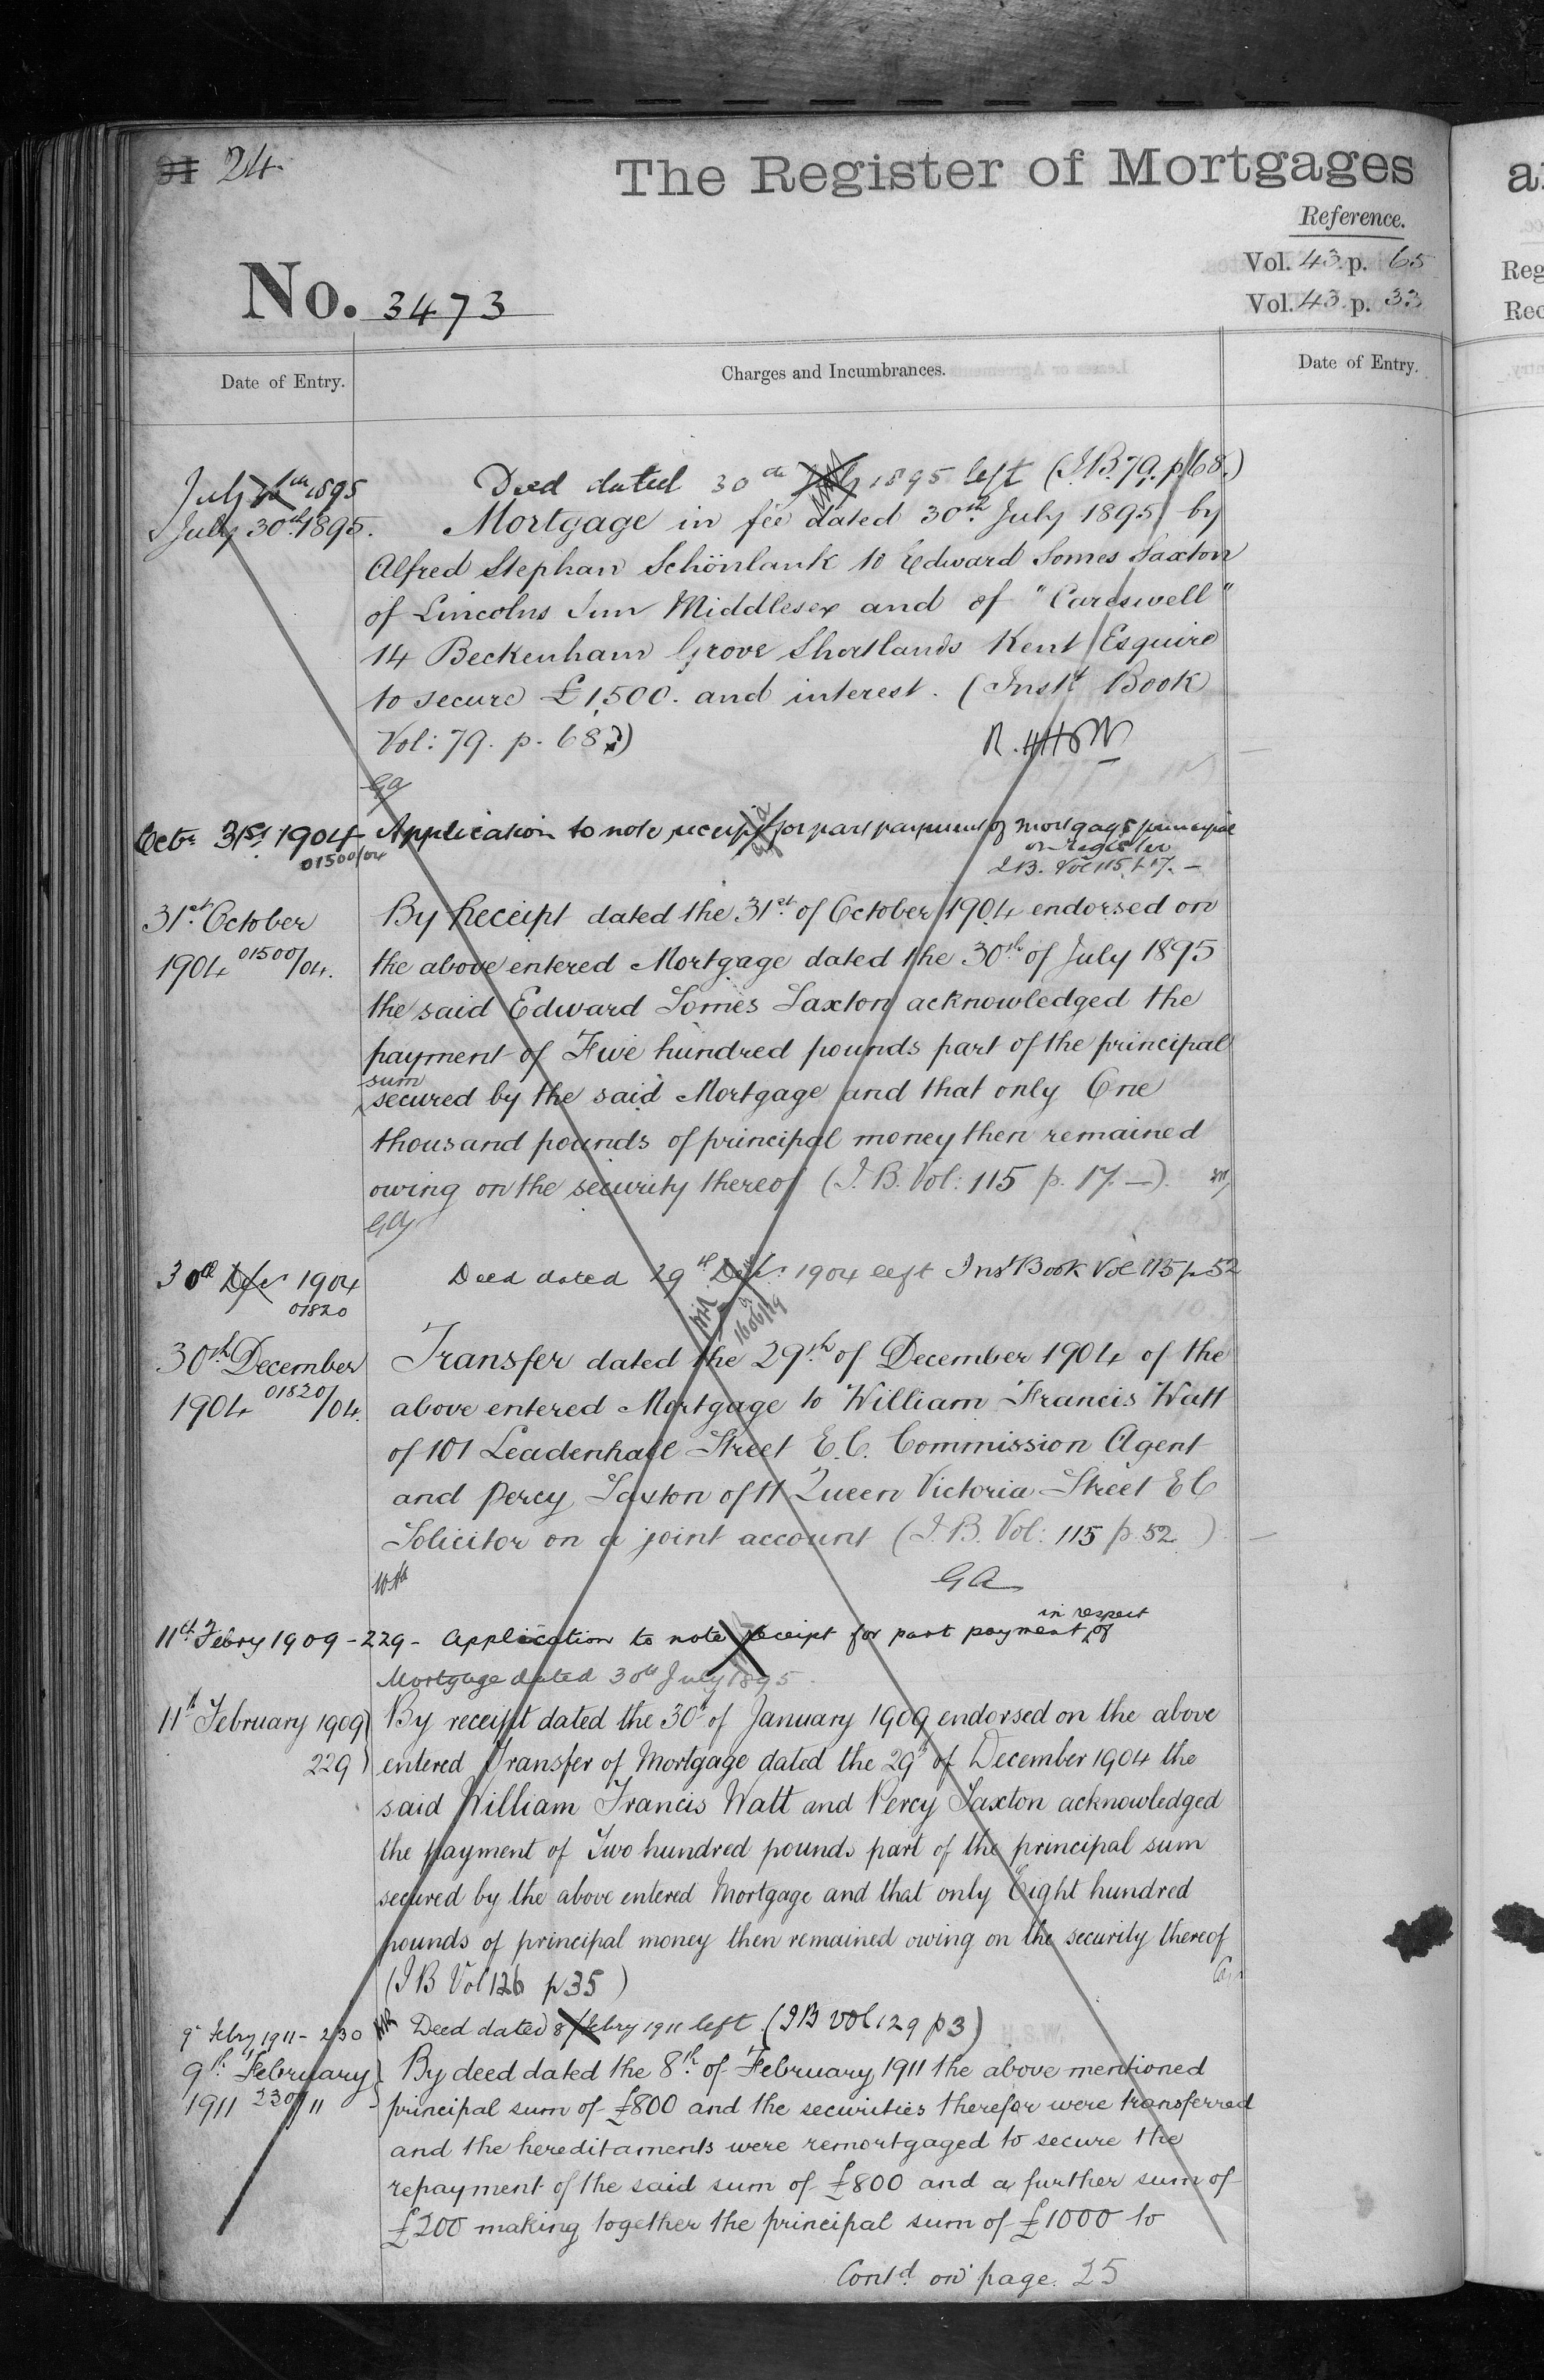 24
The Register of Mortgages
Reference.
Vol. 43. p. 65
Vol. 43. p. 33
No. 3473
Date of Entry.
Charges and Incumbrances.
Date of Entry.
July 1895
Deed dated 30th July 1895 left (I.B. 79. p. 68.)
July 30th 1895.
Mortgage in fee dated 30th July 1895 by
Alfred Stephan Schönlank to Edward Somes Saxton
of Lincolns Inn Middlesex and of "Careswell"
14 Beckenham Grove Shortlands Kent Esquire
to secure £1,500. and interest. (Inst. Book
Vol: 79. p. 68)
GA
Octr 31st 1904 01500/04
Application to note receipt for part payment of mortgage principal
on register
I.B. Vol 115 p 17. —
31st October
1904 01500/04.
By Receipt dated the 31st of October 1904 endorsed on
the above entered Mortgage dated the 30th of July 1895
the said Edward Somes Saxton acknowledged the
payment of Five hundred pounds part of the principal
sum
secured by the said Mortgage and that only One
thousand pounds of principal money then remained
owing on the security thereof (I.B. Vol: 115 p. 17. —).
GA
30th Decr 1904
01820
Deed dated 29th Decr 1904 left Inst Book Vol 115 p 52
30th December
1904 01820/04.
Transfer dated the 29th of December 1904 of the
above entered Mortgage to William Francis Watt
of 101 Leadenhall Street E.C. Commission Agent
and Percy Saxton of 11 Queen Victoria Street E C
Solicitor on a joint account (I.B. Vol: 115 p. 52 )
GA
11th Febry 1909 - 229 - Application to note receipt for part payment in respect of
Mortgage dated 30th July 1895.
11th February 1909
229
By receipt dated the 30th of January 1909 endorsed on the above
entered Transfer of Mortgage dated the 29th of December 1904 the
said William Francis Watt and Percy Saxton acknowledged
the payment of Two hundred pounds part of the principal sum
secured by the above entered Mortgage and that only Eight hundred
pounds of principal money then remained owing on the security thereof
(I B Vol 126 p 35 )
9th Febry 1911 - 230
Deed dated 8 Febry 1911 left (I B vol 129 p 3)
9th February
1911 230/11
By deed dated the 8th of February 1911 the above mentioned
principal sum of £800 and the securities therefor were transferred
and the hereditaments were remortgaged to secure the
repayment of the said sum of £800 and a further sum of
£200 making together the principal sum of £1000 to
Contd on page. 25
Reg
Rec